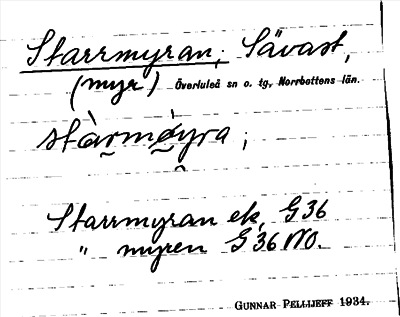 Starrmyran; Sävast,
(myr) Överluleå sn o. tg, Norrbottens län.
stàrmòyra ;
Starrmyran ek, G 36
" myren G 36 NO.
GUNNAR PELLIJEFF 1934.